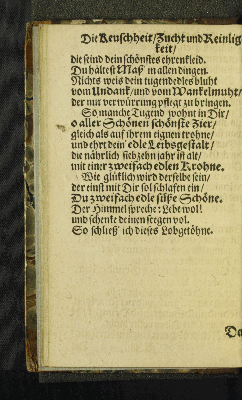 Die Keuschheit / Zucht und Reinlig
keit /
die seind dein schönstes ehrenkleid.
Du hältest Maß in allen dingen.
Nichts weis dein tugendedles bluht
vom Undank / und vom Wankelmuht /
der nur verwürrung pflegt zu bringen.
So manche Tugend wohnt in Dir /
o aller Schönen schönste Zier /
gleich als auf ihrem eignen trohne /
und ehrt dein edle Leibsgestalt /
die nährlich siebzehn jahr ist alt /
mit einer zweifach edlen Krohne.
Wie glüklich wird derselbe sein /
der einst mit Dir sol schlafen ein /
Du zweifach edle süße Schöne.
Der Himmel spreche: Lebt wol!
und schenke deinen segen vol.
So schließ' ich dieses Lobgetöhne.